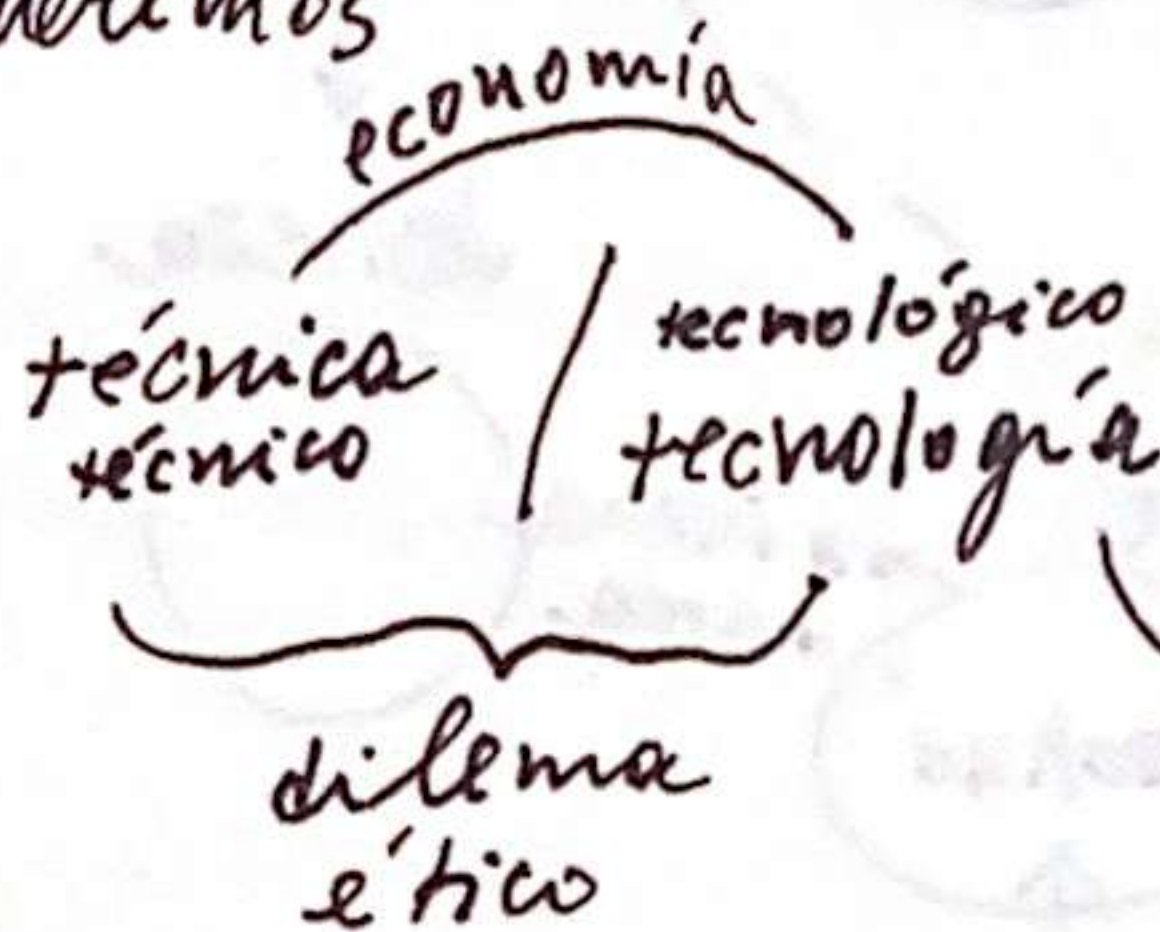 economía
técnica / tecnológico
técnico tecnología
dilema
ético